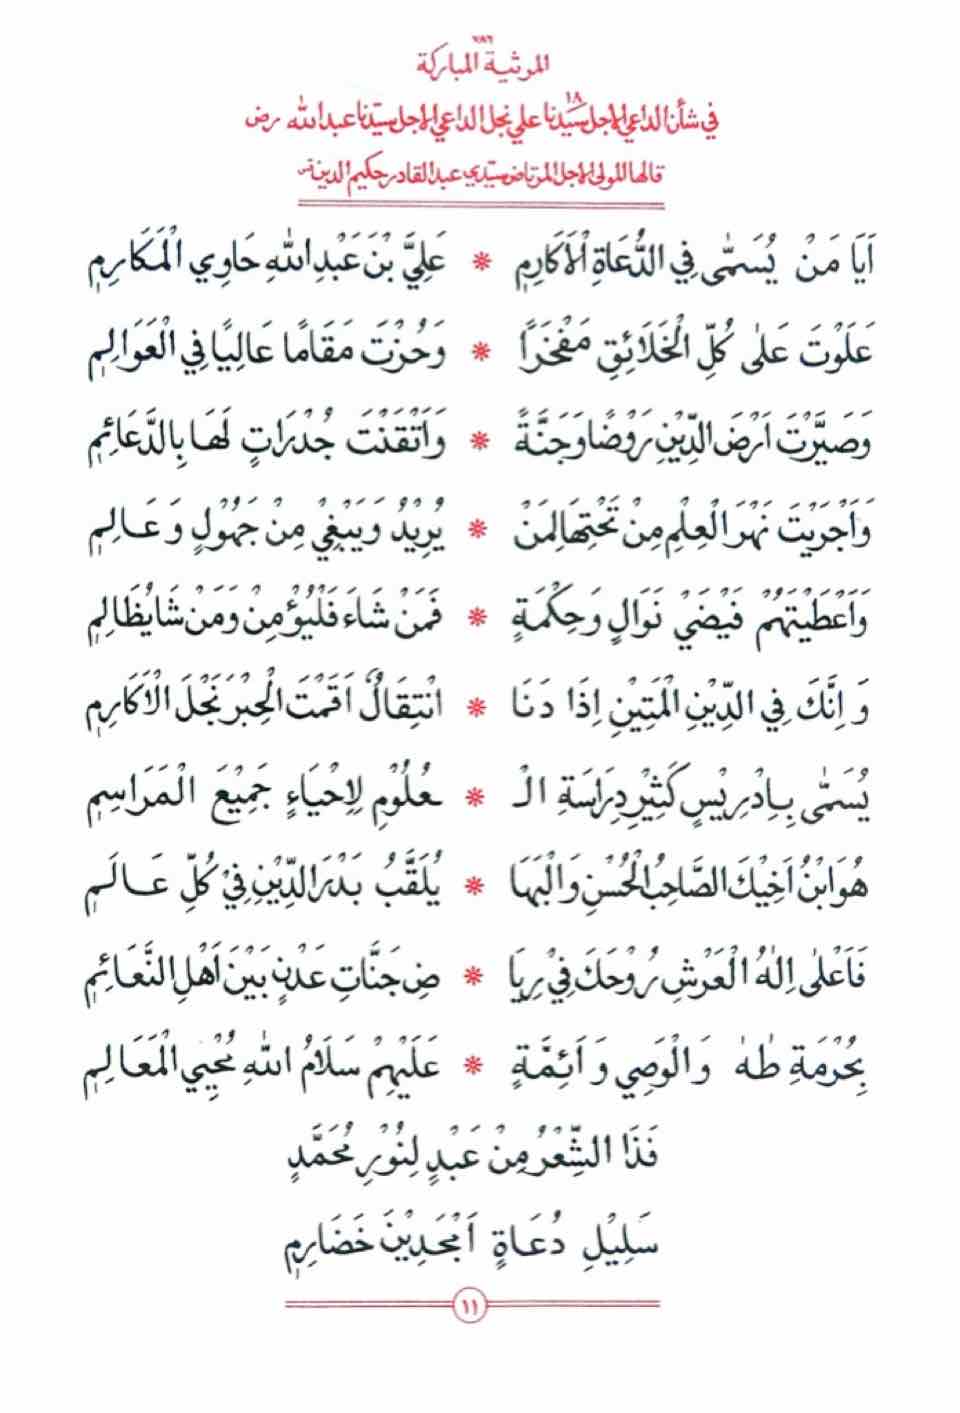 ٧٨٦
المرثية المباركة
في شأن الداعي الاجل سيدنا علي ١٨ نجل الداعي الاجل سيدنا عبد الله رض
قالها المولى الاجل المرتاض سيدي عبد القادر حكيم الدين قس
اَيَا مَنْ يُسَمّٰى فِي الدُّعَاةِ الْاَكَارِمِ * عَلِيَّ بْنَ عَبْدِ اللهِ حَاوِي الْمَكَارِمِ
عَلَوْتَ عَلٰى كُلِّ الْخَلَائِقِ مَفْخَرًا * وَحُزْتَ مَقَامًا عَالِيًا فِي الْعَوَالِمِ
وَصَيَّرْتَ اَرْضَ الدِّيْنِ رَوْضًا وَجَنَّةً * وَاَتْقَنْتَ جُدْرَاتٍ لَهَا بِالدَّعَائِمِ
وَاَجْرَيْتَ نَهْرَ الْعِلْمِ مِنْ تَحْتِهَا لِمَنْ * يُرِيْدُ وَيَبْغِيْ مِنْ جَهُوْلٍ وَعَالِمِ
وَاَعْطَيْتَهُمْ فَيْضَيْ نَوَالٍ وَحِكْمَةٍ * فَمَنْ شَاءَ فَلْيُؤْمِنْ وَمَنْ شَا يُظَالِمِ
وَاِنَّكَ فِي الدِّيْنِ الْمَتِيْنِ اِذَا دَنَا * انْتِقَالٌ اَقَمْتَ الْحِبْرَ نَجْلَ الْاَكَارِمِ
يُسَمّٰى بِاِدْرِيْسٍ كَثِيْرِ دِرَاسَةِ الْـ * ـعُلُوْمِ لِاِحْيَاءٍ جَمِيْعَ الْمَرَاسِمِ
هُوَ ابْنُ اَخِيْكَ الصَّاحِبُ الْحُسْنِ وَالْبَهَا * يُلَقَّبُ بَدْرَ الدِّيْنِ فِيْ كُلِّ عَالَمِ
فَاَعْلٰى اِلٰهُ الْعَرْشِ رُوْحَكَ فِيْ رِيَا * ضِ جَنَّاتِ عَدْنٍ بَيْنَ اَهْلِ النَّعَائِمِ
بِحُرْمَةِ طٰهٰ وَالْوَصِي وَاَئِمَّةٍ * عَلَيْهِمْ سَلَامُ اللهِ مُحْيِي الْمَعَالِمِ
فَذَا الشِّعْرُ مِنْ عَبْدٍ لِنُوْرِ مُحَمَّدٍ
سَلِيْلِ دُعَاةٍ اَمْجَدِيْنَ خَضَارِمِ
١١